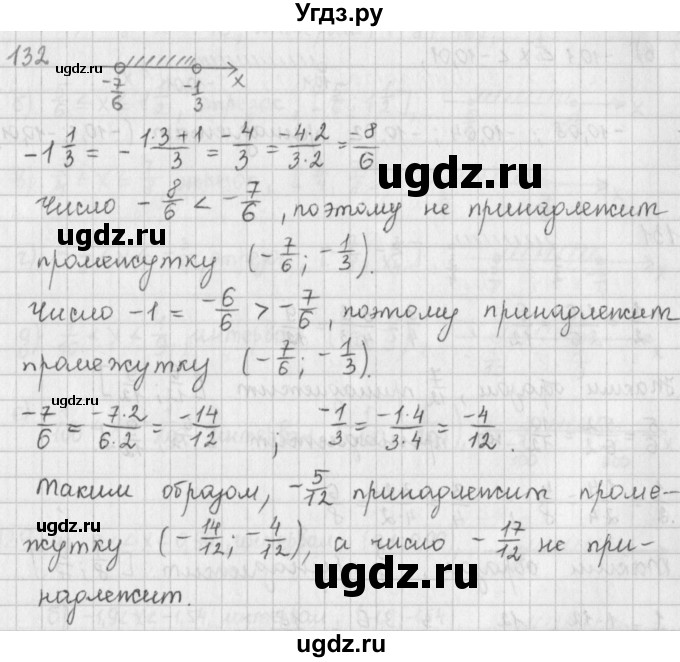 Угдз.ру
132
ugdz.ru
-7/6 -1/3 x
-1 1/3 = - (1·3+1)/3 = -4/3 = (-4·2)/(3·2) = -8/6
ugdz.ru
Число - 8/6 < - 7/6, поэтому не принадлежит
ugdz.ru
промежутку (-7/6; -1/3).
Число -1 = -6/6 > -7/6, поэтому принадлежит
ugdz.ru
промежутку (-7/6; -1/3).
ugdz.ru
-7/6 = (-7·2)/(6·2) = -14/12 ; -1/3 = (-1·4)/(3·4) = -4/12.
Таким образом, -5/12 принадлежит проме-
ugdz.ru
жутку (-14/12; -4/12), а число -17/12 не при-
ugdz.ru
надлежит.
ugdz.ru